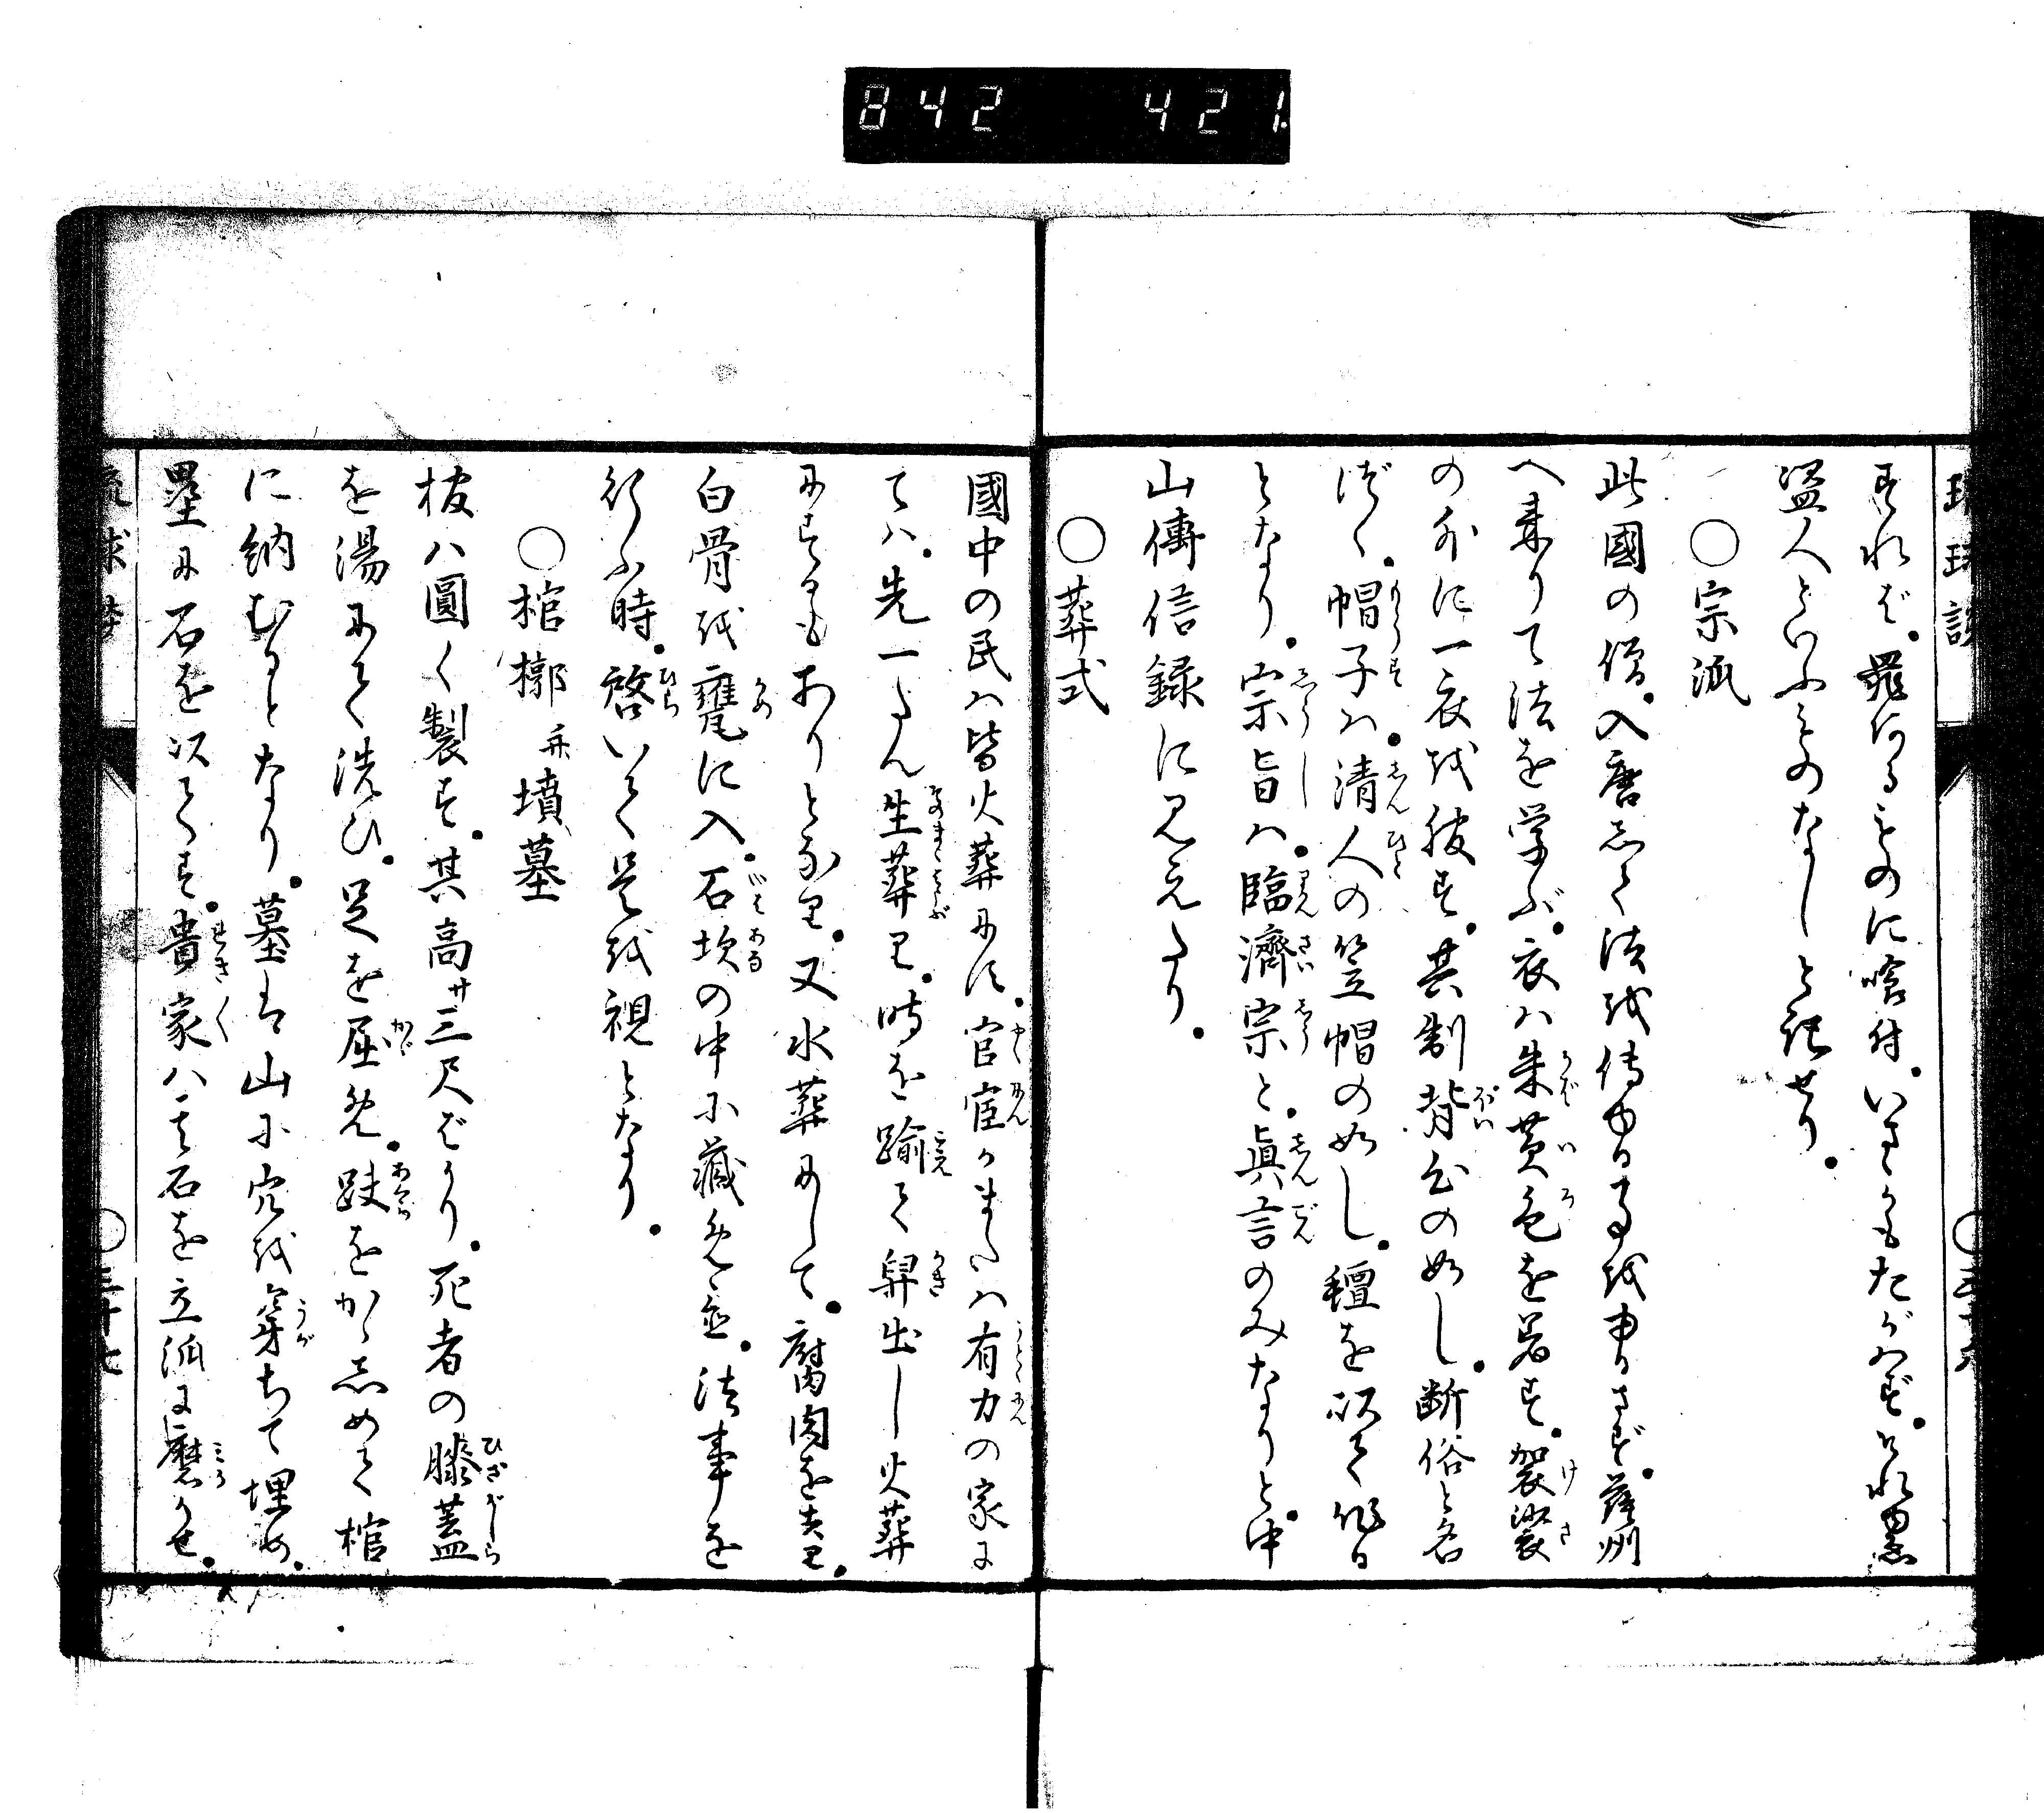 842 421.
琉球談
すれば。罪あるものに喰付。いさゝかもたがはず。それ故
盗人といふものなしと記せり。
○宗派
此國の僧。入唐して法を傳ゆる事を申さず。薩州
へ来りて法を学ぶ。衣ハ朱黄色を着す。袈裟
の外に一衣を披す。其制背心の如し。断俗と名
づく。帽子ハ。清人の笠帽の如し。氊を以て作る
となり。宗旨ハ。臨濟宗と。眞言のみなりと。中
山傳信録に見えたり。
○葬式
國中の民ハ皆火葬にす。官宦またハ有力の家に
てハ。先一たん生葬し。時を踰て舁出し火葬
にするもありとなり。又水葬にして。腐肉を去り。
白骨を甕に入。石坎の中に藏め置。法事を
行ふ時。啓いて是を視となり。
○棺槨并墳墓
棺ハ圓く製す。其高サ三尺ばかり。死者の膝蓋
を湯にて洗ひ。足を屈め。趺をかゝしめて棺
に納むるとなり。墓は山に穴を穿ちて埋め。
壘に石を以てす。貴家ハ其石を立派に磨かせ。
琉球談
○三十七